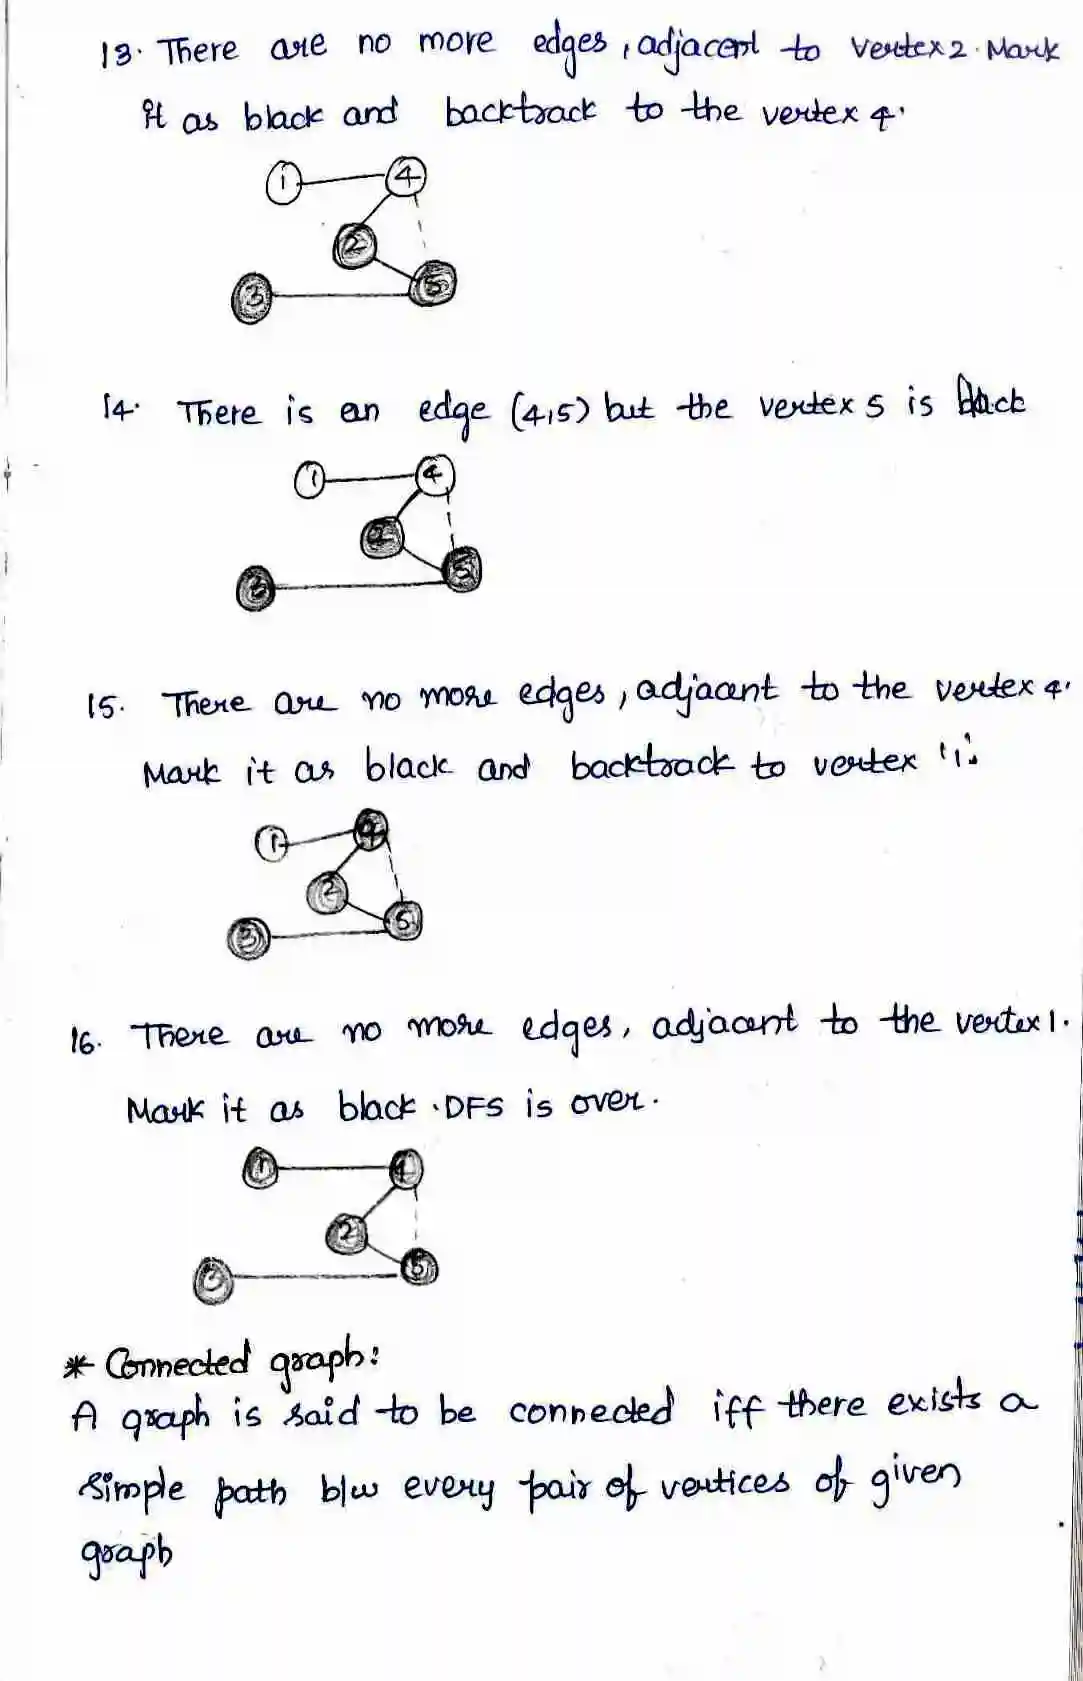 13. There are no more edges, adjacent to vertex 2. Mark
it as black and backtrack to the vertex 4.
1 4
2
3 5
14. There is an edge (4,5) but the vertex 5 is
1 4
5
15. There are no more edges, adjacent to the vertex 4.
Mark it as black and backtrack to vertex '1'.
1 4
2
3 5
16. There are no more edges, adjacent to the vertex 1.
Mark it as black. DFS is over.
1 4
2
3 5
* Connected graph:
A graph is said to be connected iff there exists a
simple path b/w every pair of vertices of given
graph